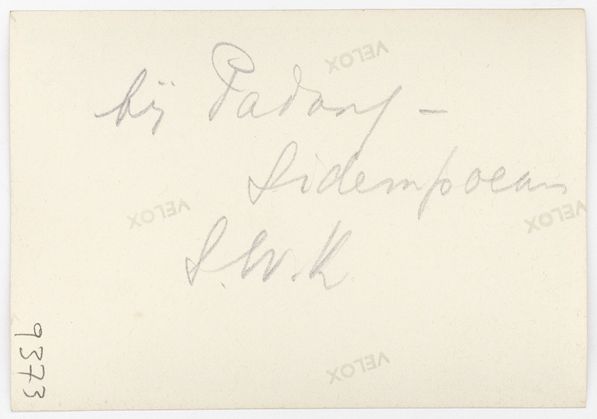 bij Padang –
Sidempoean
S.W.K
9373
VELOX
VELOX
VELOX
VELOX